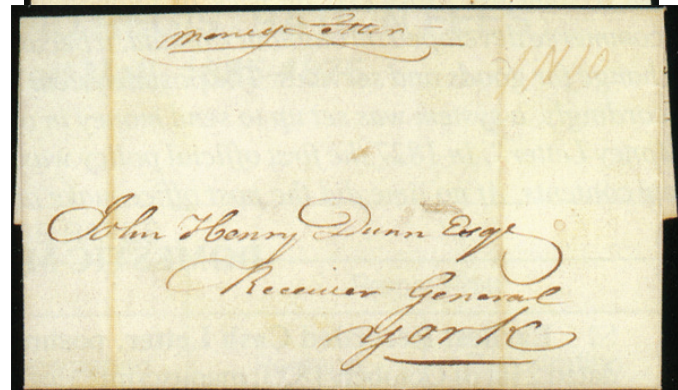 Money Letter
1N10
John Henry Dunn Esqr
Receiver General
York